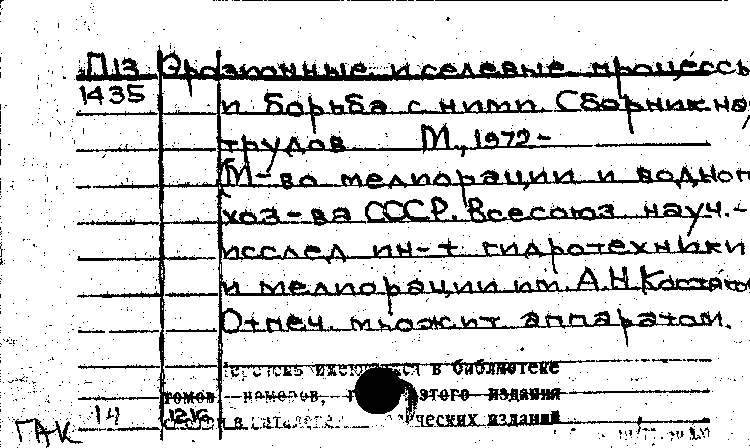 П13 Эрозионные и селевые процессы
1435 и борьба с ними. Сборник на
трудов М., 1972-
М-во мелиорации и водного
хоз-ва СССР. Всесоюз науч.-
исслед ин-т гидротехники
и мелиорации им. А.Н. Костяков
Отпеч. множит аппаратом.
имеющихся в библиотеке
томов номеров, этого издания
в каталоге ческих изданий
14 1216
ГАК